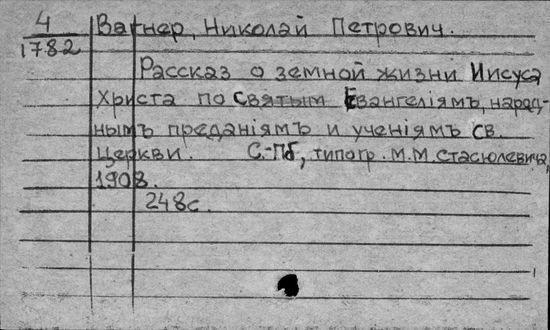 4
1782
Вагнер, Николай Петрович.
Рассказ о земной жизни Иисуса
Христа по святым Евангеліямъ, народ-
нымъ преданіямъ и ученіямъ св.
Церкви. С.-Пб, типогр. М.М. Стасюлевича,
1908.
248с.